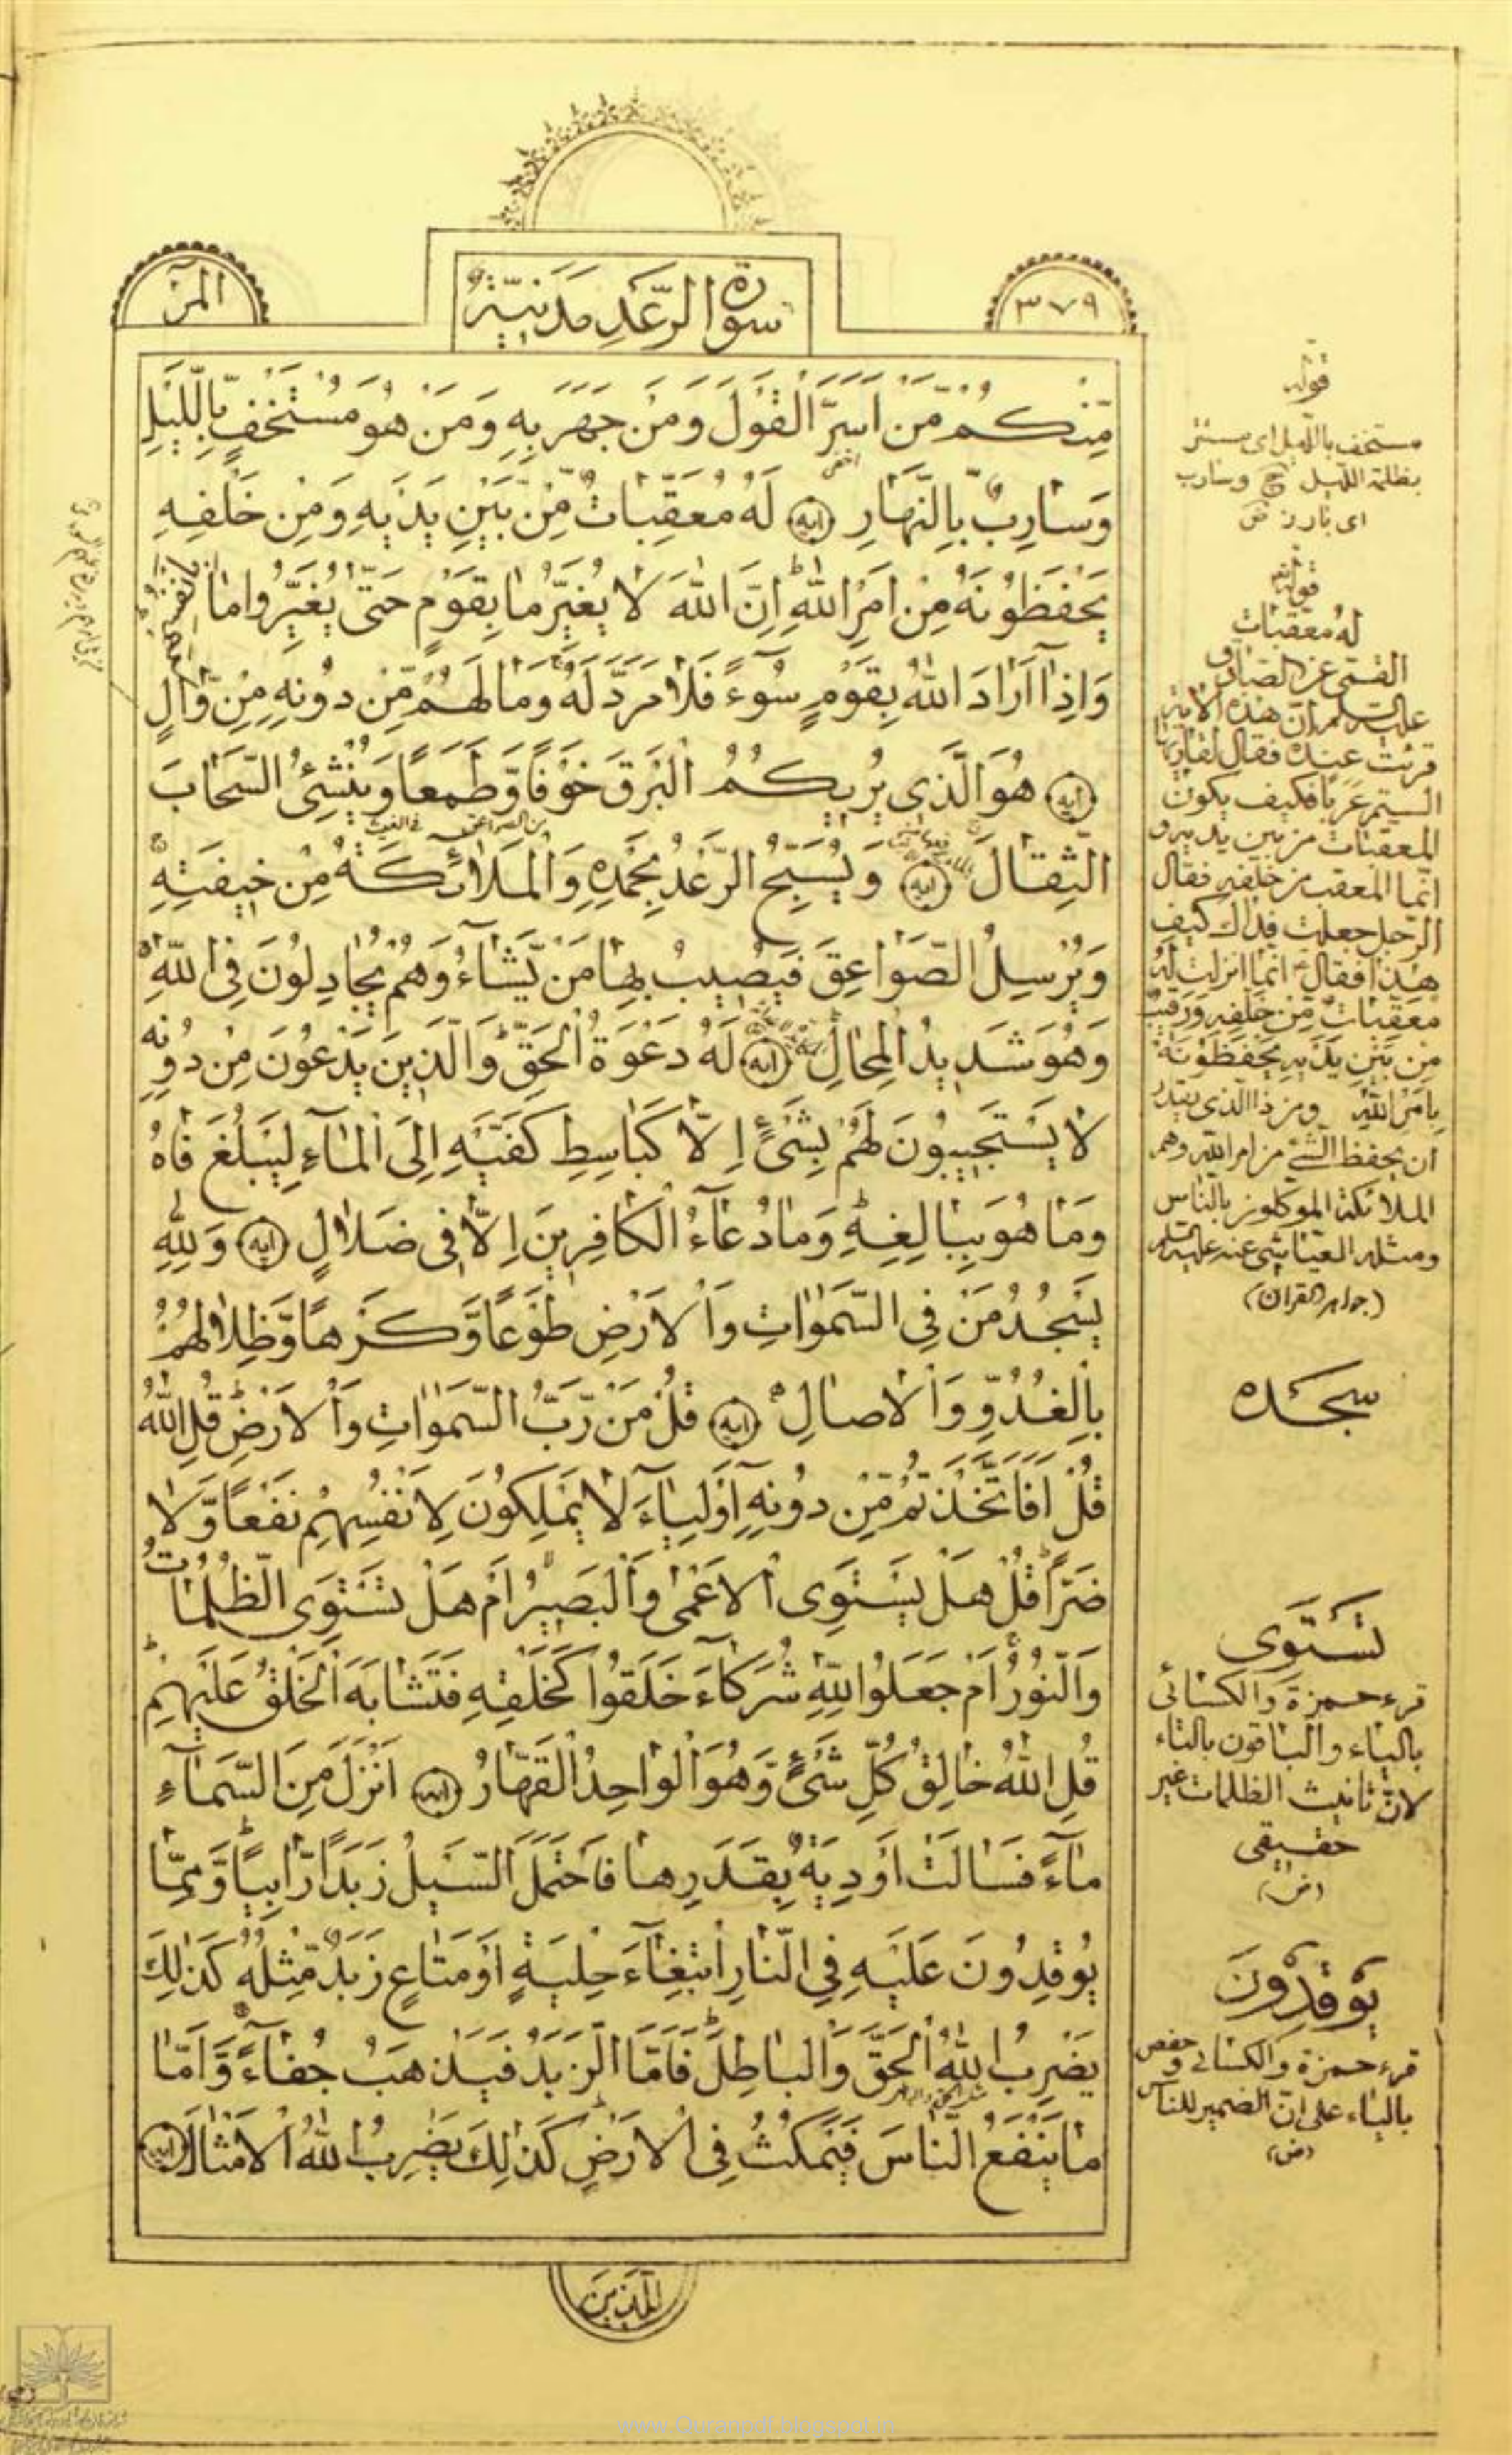 المر
سورة الرَّعْدِ مَدَنِيَّةٌ
٣٧٩
مِنْكُمْ مَّنْ اَسَرَّ الْقَوْلَ وَمَنْ جَهَرَ بِهِ وَمَنْ هُوَ مُسْتَخْفٍ بِاللَّيْلِ
وَسَارِبٌ بِالنَّهَارِ ايه لَهُ مُعَقِّبَاتٌ مِّنْ بَيْنِ يَدَيْهِ وَمِنْ خَلْفِهِ
يَحْفَظُونَهُ مِنْ اَمْرِ اللهِ ط اِنَّ اللهَ لا يُغَيِّرُ ما بِقَوْمٍ حَتّىٰ يُغَيِّرُوا ما بِاَنْفُسِهِمْ
وَاِذا اَرَادَ اللهُ بِقَوْمٍ سُوءً فَلا مَرَدَّ لَهُ وَمَا لَهُمْ مِّنْ دُونِهِ مِنْ وَّالٍ
ايه هُوَ الَّذي يُريكُمُ الْبَرْقَ خَوْفًا وَّطَمَعًا وَيُنْشِئُ السَّحَابَ
الثِّقَالَ ايه وَيُسَبِّحُ الرَّعْدُ بِحَمْدِهِ وَالْمَلآئِكَةُ مِنْ خيفَتِهِ ج
وَيُرْسِلُ الصَّوَاعِقَ فَيُصيبُ بِهَا مَنْ يَّشَآءُ وَهُمْ يُجَادِلُونَ فِى اللّٰهِ
وَهُوَ شَديدُ الْمِحَالِ ايه لَهُ دَعْوَةُ الْحَقِّ ط وَالَّذينَ يَدْعُونَ مِنْ دُونِه
لا يَسْتَجيبُونَ لَهُمْ بِشَىْءٍ اِلّا كَبَاسِطِ كَفَّيْهِ اِلَى الْمَآءِ لِيَبْلُغَ فَاهُ
وَمَا هُوَ بِبَالِغِهِ ط وَمَا دُعَآءُ الْكَافِرينَ اِلّا في ضَلالٍ ايه وَلِلّٰهِ
يَسْجُدُ مَنْ فِي السَّمٰوَاتِ وَالْاَرْضِ طَوْعًا وَّكَرْهًا وَّظِلالُهُمْ
بِالْغُدُوِّ وَالْاصَالِ ايه قُلْ مَنْ رَّبُّ السَّمٰوَاتِ وَالْاَرْضِ ط قُلِ اللهُ ط
قُلْ اَفَاتَّخَذْتُمْ مِّنْ دُونِهِ اَوْلِيَآءَ لا يَمْلِكُونَ لِاَنْفُسِهِمْ نَفْعًا وَّلا
ضَرًّا ط قُلْ هَلْ يَسْتَوِى الْاَعْمٰى وَالْبَصيرُ اَمْ هَلْ تَسْتَوِى الظُّلُمَاتُ
وَالنُّورُ اَمْ جَعَلُوا لِلّٰهِ شُرَكَآءَ خَلَقُوا كَخَلْقِهِ فَتَشَابَهَ الْخَلْقُ عَلَيْهِمْ ط
قُلِ اللهُ خَالِقُ كُلِّ شَىْءٍ وَّهُوَ الْوَاحِدُ الْقَهَّارُ ايه اَنْزَلَ مِنَ السَّمَآءِ
مَآءً فَسَالَتْ اَوْدِيَةٌ بِقَدَرِهَا فَاحْتَمَلَ السَّيْلُ زَبَدًا رَّابِيًا ط وَّمِمَّا
يُوقِدُونَ عَلَيْهِ فِي النَّارِ ابْتِغَآءَ حِلْيَةٍ اَوْ مَتَاعٍ زَبَدٌ مِّثْلُهُ ط كَذٰلِكَ
يَضْرِبُ اللهُ الْحَقَّ وَالْبَاطِلَ ط فَاَمَّا الزَّبَدُ فَيَذْهَبُ جُفَآءً ج وَّاَمَّا
مَا يَنْفَعُ النَّاسَ فَيَمْكُثُ فِى الْاَرْضِ كَذٰلِكَ يَضْرِبُ اللهُ الْاَمْثَالَ ايه
لِلَّذينَ
قوله
مستخف بالليل اى مستتر
بظلمة الليل وسارب
اى بارز ض
قوله تع
له معقبات
القمى عن الصادق
عليه السلام ان هذه الاية
قرئت عنده فقال لقاريها
الستم عربا فكيف يكون
المعقبات من بين يديه و
انما المعقب من خلفه فقال
الرجل جعلت فداك كيف
هذا فقال انما انزلت له
معقبات من خلفه ورقيب
من بين يديه يحفظونه
بامر الله ومن ذا الذى يقدر
ان يحفظ الشئ من امر الله وهم
الملائكة الموكلون بالناس
ومثله العياشى عنه عليه السلم
(جواهر القران)
سجده
تَسْتَوى
قرء حمزة والكسائى
بالياء والباقون بالتاء
لان تانيث الظلمات غير
حقيقى
(ض)
يُوقِدُونَ
قرء حمزة والكسائى و حفص
بالياء على ان الضمير للناس
(ض)
www.Quranpdf.blogspot.in